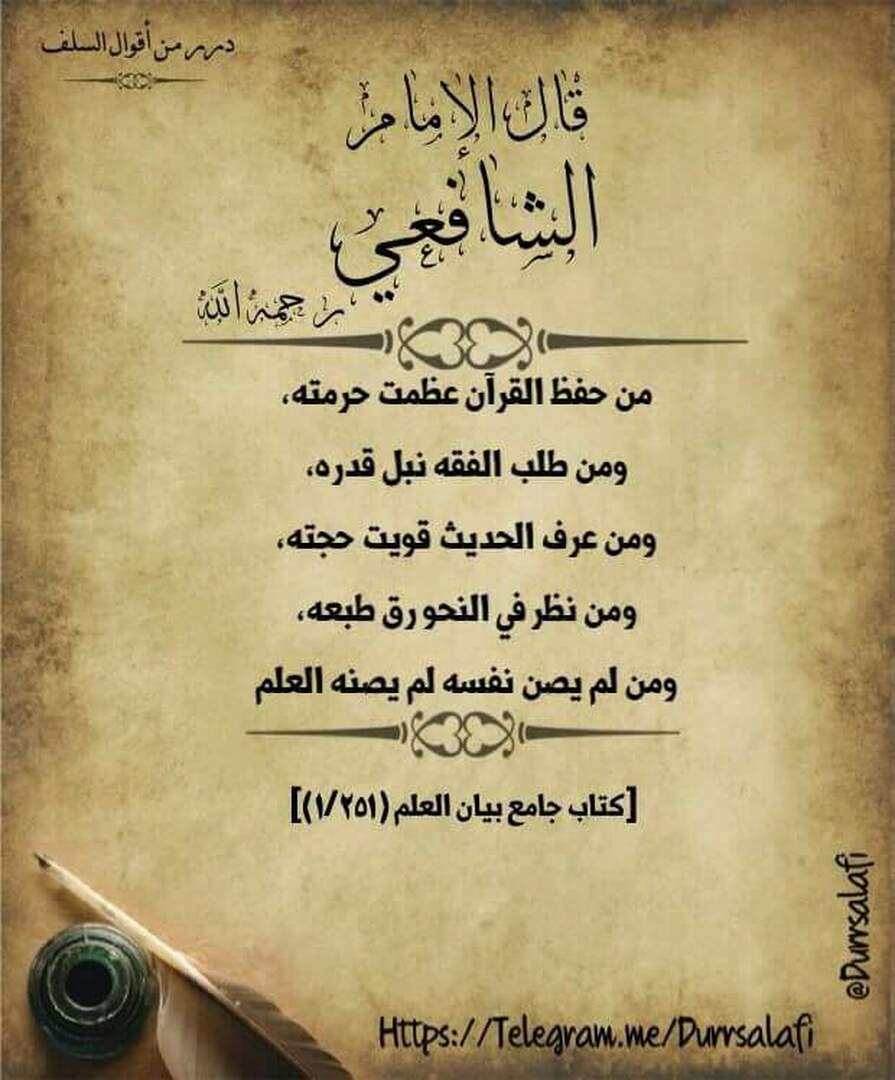 درر من أقوال السلف
قال الإمام
الشافعي
رحمه الله
من حفظ القرآن عظمت حرمته،
ومن طلب الفقه نبل قدره،
ومن عرف الحديث قويت حجته،
ومن نظر في النحو رق طبعه،
ومن لم يصن نفسه لم يصنه العلم
[كتاب جامع بيان العلم (١/٢٥١)]
@Durrsalafi
Https://Telegram.me/Durrsalafi